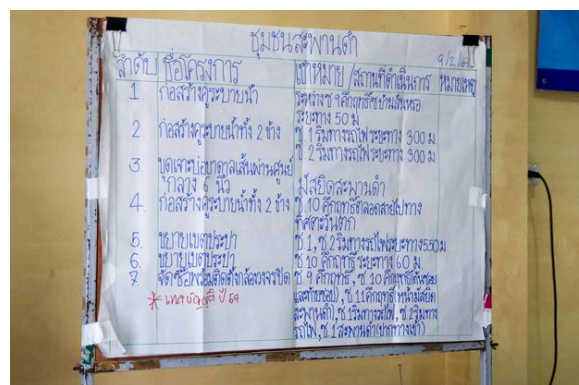 ชุมชนสะพานดำ
ลำดับ ชื่อโครงการ เป้าหมาย/สถานที่ดำเนินการ หมายเหตุ
1. ก่อสร้างคูระบายน้ำ ระหว่างซ.9คึกฤทธิ์
ระยะทาง 50 ม.
2. ก่อสร้างคูระบายน้ำทั้ง 2 ข้าง ซ.1 ริมทางรถไฟระยะทาง 300 ม.
ซ.2 ริมทางรถไฟระยะทาง 300 ม.
3. ขุดเจาะบ่อบาดาลเส้นผ่านศูนย์
กลาง 6 นิ้ว มัสยิดสะพานดำ
4. ก่อสร้างคูระบายน้ำทั้ง 2 ข้าง ซ.10 คึกฤทธิ์ตลอดสายไปทาง
ทิศตะวันตก
5. ขยายเขตประปา ซ.1, ซ.2 ริมทางรถไฟระยะทาง 550 ม.
6. ขยายเขตประปา ซ.10 คึกฤทธิ์ ระยะทาง 60 ม.
7 จัดซื้อพร้อมติดตั้งกล้องวงจรปิด ซ.9 คึกฤทธิ์, ซ.10 คึกฤทธิ์(ต้นซอย
และท้ายซอย), ซ.11คึกฤทธิ์(หน้ามัสยิด
* เทศบัญญัติ ปี 69 สะพานดำ), ซ.1ริมทางรถไฟ, ซ.2ริมทาง
รถไฟ, ซ.1 สะพานดำ(ปากทางเข้า)